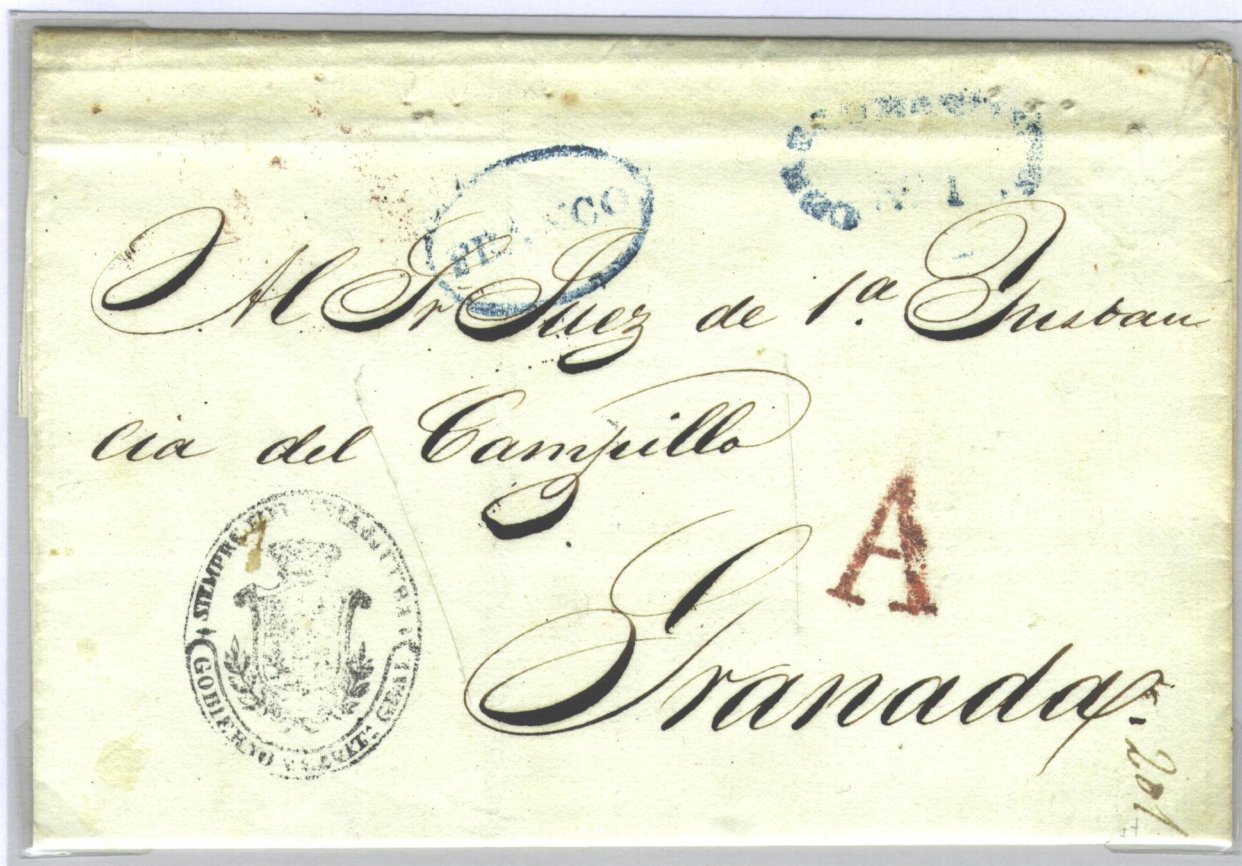 FRANCO
Nº 1
Al Sr Juez de 1ª Instan
cia del Campillo
A
Granada
SIEMPRE FIEL
GOBIERNO CIVIL
201